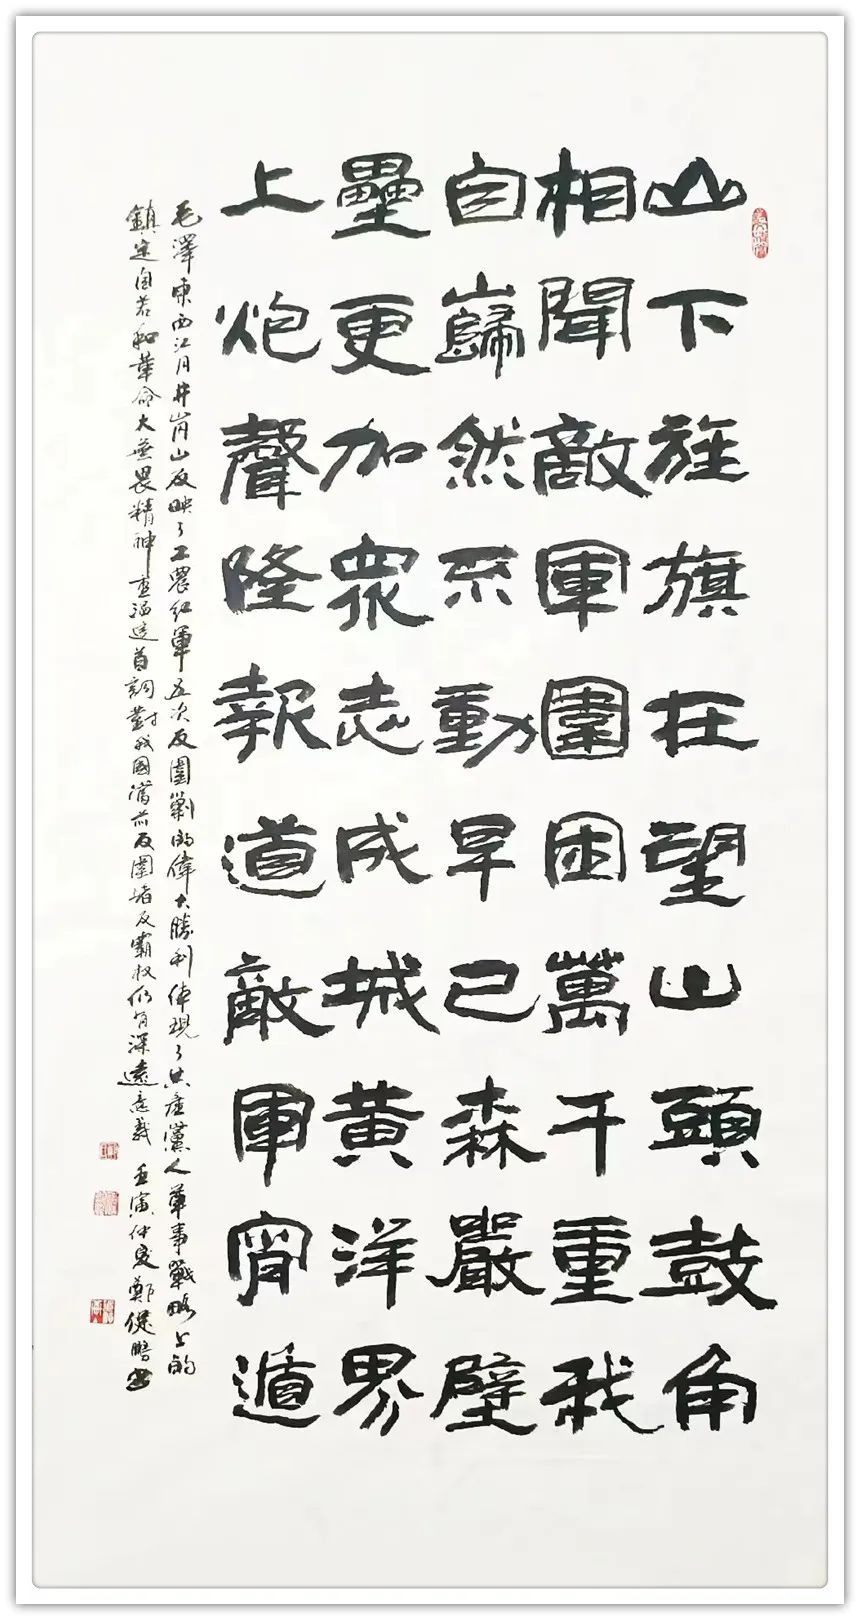 山下旌旗在望山頭鼓角
相聞敵軍圍困萬千重我
自巋然不動早已森嚴壁
壘更加衆志成城黄洋界
上炮聲隆報道敵軍宵遁
毛澤東西江月井崗山反映了工農红軍五次反圍剿的偉大勝利体現了共產黨人軍事戰略上的
鎮定自若和革命大無畏精神重温這首詞對我國當前反圍堵反霸权仍有深遠意義 壬寅仲夏鄭健鵬書